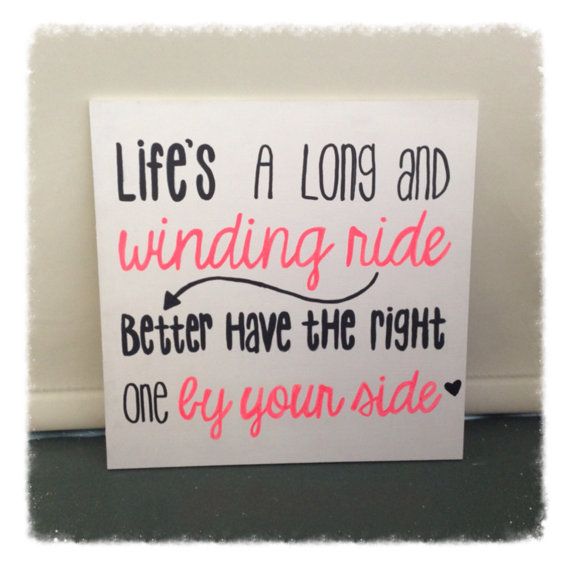 Life's A Long and
winding ride
Better Have the right
one by your side